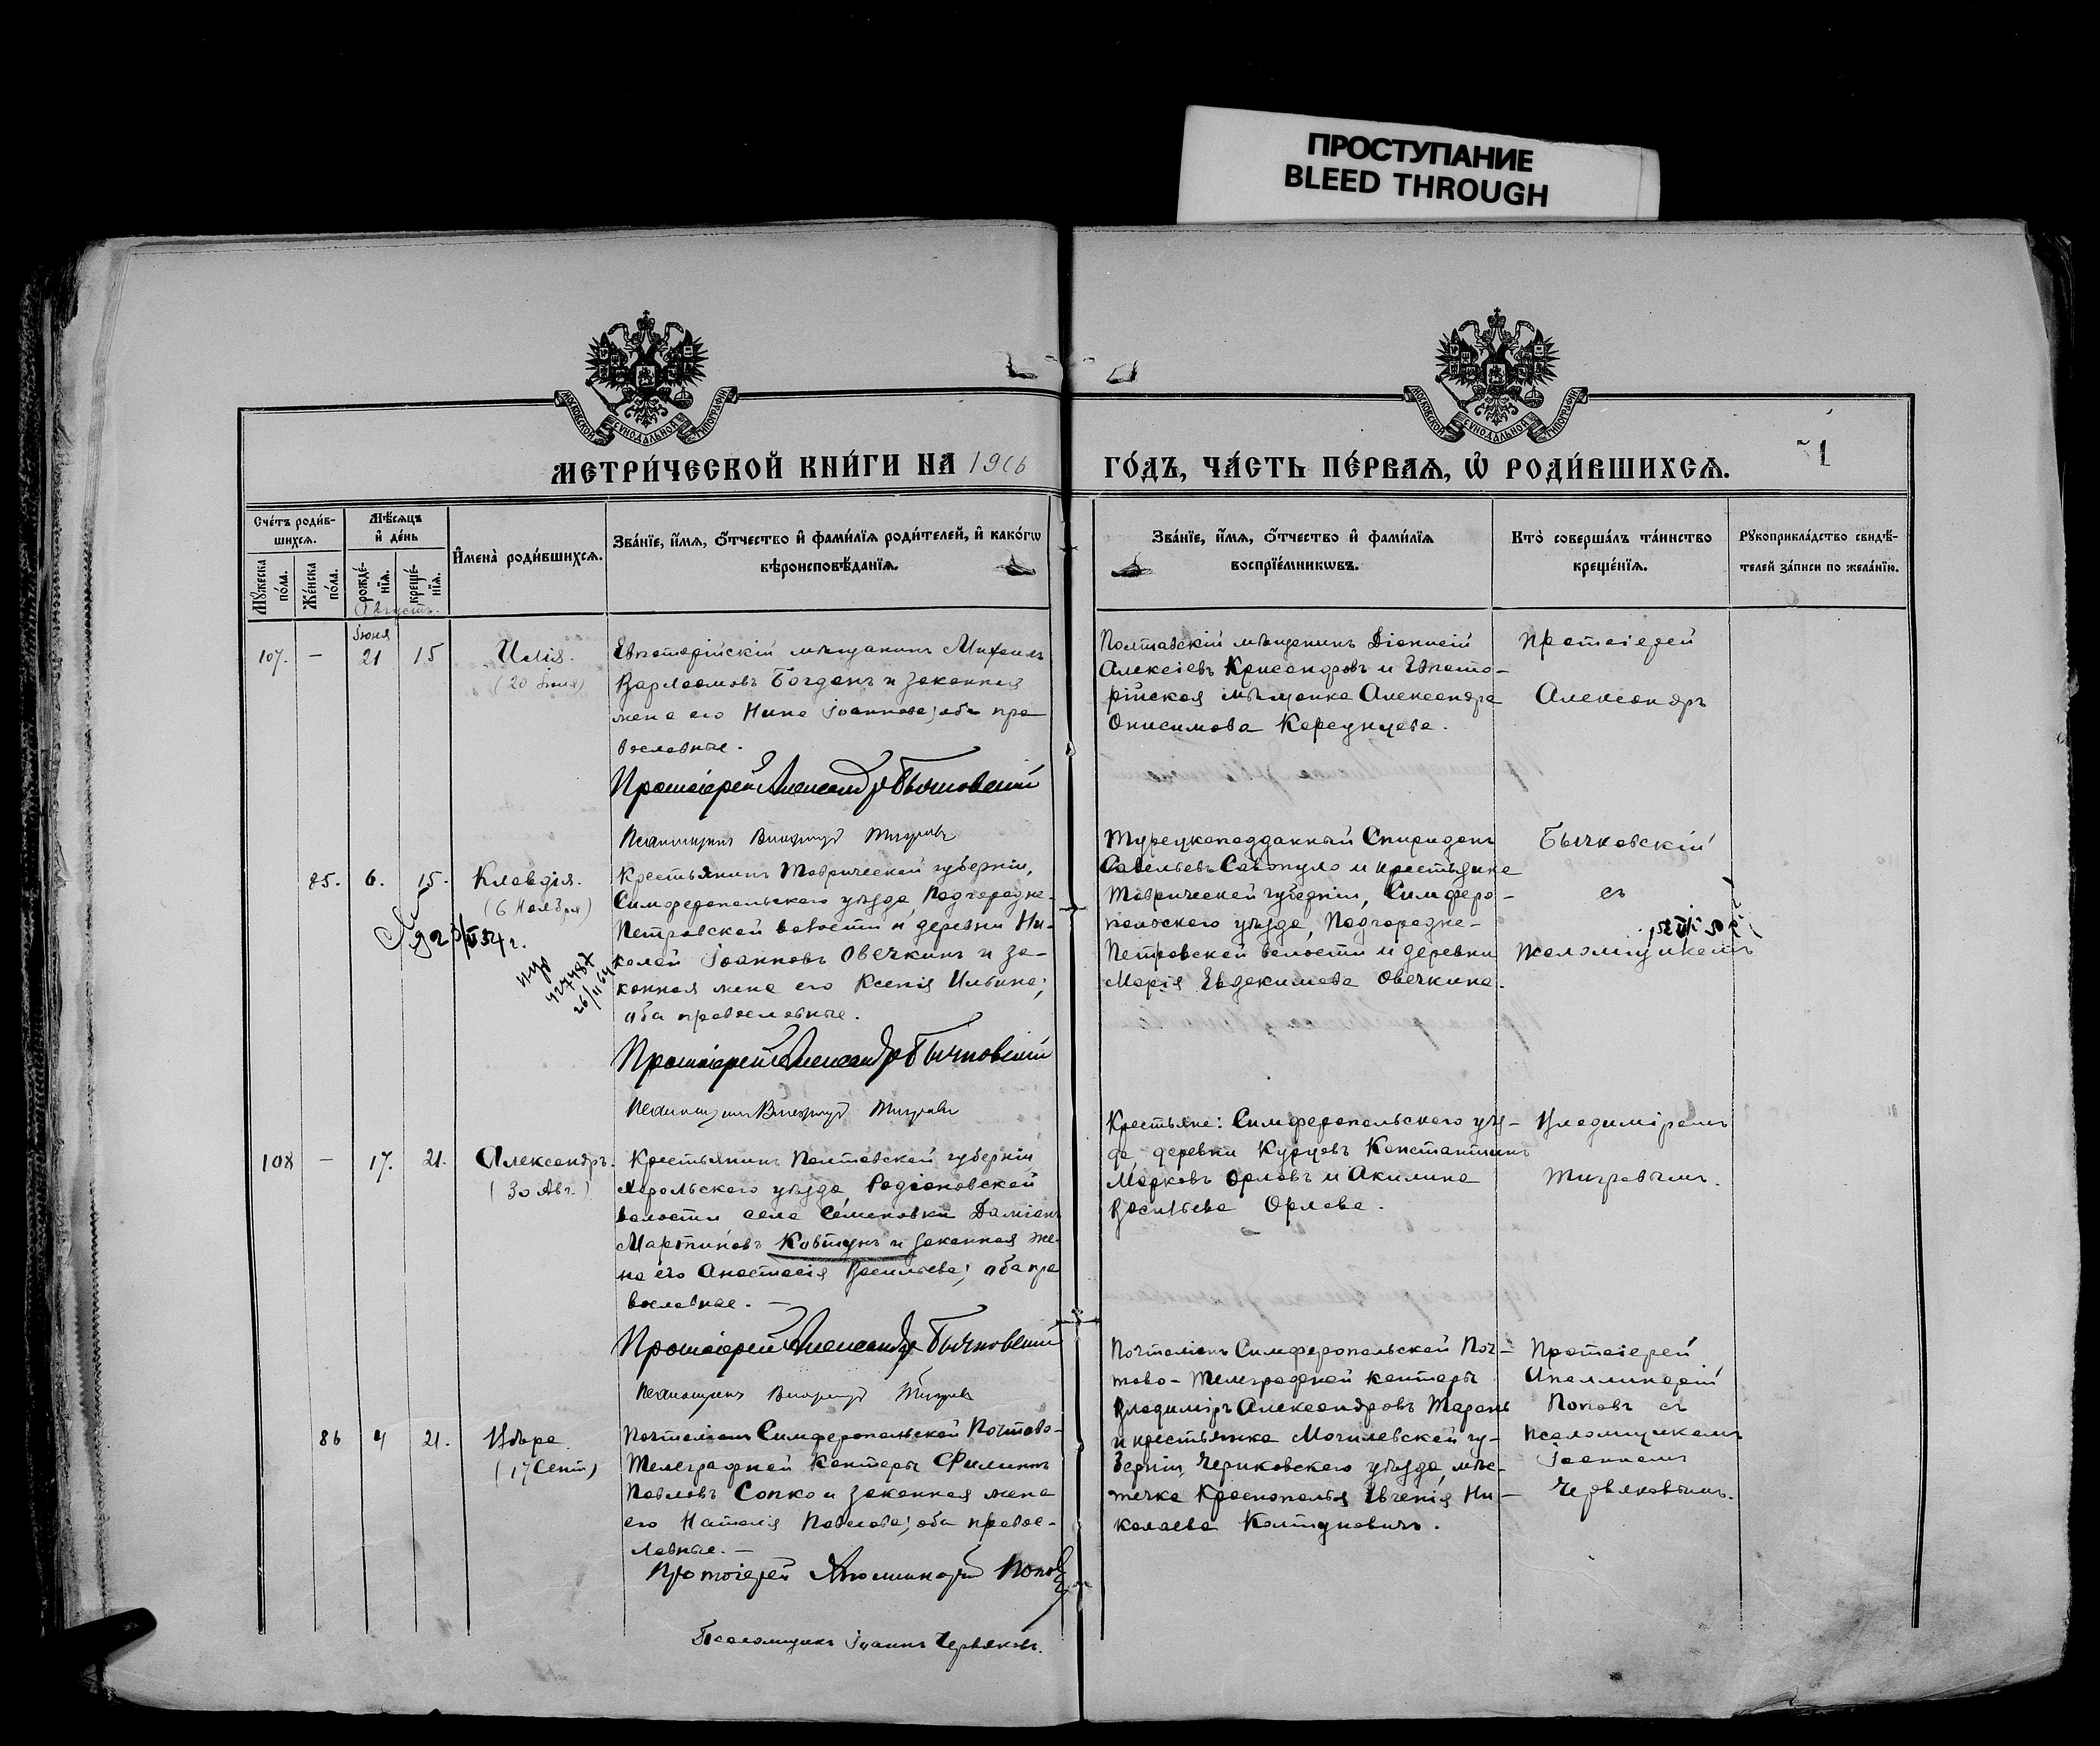 ПРОСТУПАНИЕ
BLEED THROUGH
МОСКОВСКОЙ СУНОДАЛЬНОЙ ТИПОГРАФІИ
МОСКОВСКОЙ СУНОДАЛЬНОЙ ТИПОГРАФІИ
МЕТРИ́ЧЕСКОЙ КНИ́ГИ НА 1906
ГО́ДЪ, ЧА́СТЬ ПЕ́РВАѦ, Ѡ РОДИ́ВШИХСѦ.
Сче́тъ роди́в-
шихсѧ.
Мꙋ́жеска по́ла.
Же́нска по́ла.
Мѣ́сѧцъ
и҆ де́нь
рожде́-
нїѧ.
креще́-
нїѧ.
И҆мена̀ роди́вшихсѧ.
Зва́нїе, и҆́мѧ, ѻ҆́тчество и҆ фами́лїѧ роди́телей, и҆ како́гѡ
вѣроисповѣ́данїѧ.
Зва́нїе, и҆́мѧ, ѻ҆́тчество и҆ фами́лїѧ
воспрїе́мникѡвъ.
Кто̀ соверша́лъ та́инство
креще́нїѧ.
Рꙋкоприкла́дство свидѣ́-
телей за́писи по жела́нїю.
Августъ.
107.
—
Iюня
21
15
Илія.
(20 Iюля)
Евпаторійскій мѣщанинъ Михаилъ
Варлаамовъ Богданъ и законная
жена его Нина Iоаннова; оба пра
вославные.
Протоіерей Александръ Бычковскій
Псаломщикъ Владиміръ Тигровъ
Полтавскій мѣщанинъ Діонисій
Алексіевъ Крисандровъ и Евпато-
рійская мѣщанка Александра
Онисимова Карсунцева.
Протоіерей
Александръ
Бычковскій
съ
псаломщикомъ
Владиміромъ
Тигровымъ.
85.
6.
15.
Клавдія.
(6 Ноября)
427487
26/II 64
Крестьянинъ Таврической губерніи,
Симферопольскаго уѣзда, Подгородне-
Петровской волости и деревни Ни-
колай Iоанновъ Овечкинъ и за-
конная жена его Ксенія Ильина;
оба православные.
Протоіерей Александръ Бычковскій
Псаломщикъ Владиміръ Тигровъ
Турецкоподданный Спиридонъ
Савельевъ Савопуло и крестьянка
Таврической губерніи, Симферо-
польскаго уѣзда, Подгородне-
Петровской волости и деревни
Марія Евдокимова Овечкина.
108
—
17.
21.
Александръ.
(30 Авг.)
Крестьянинъ Полтавской губерніи
Хорольскаго уѣзда, Родіоновской
волости села Семеновки Даміанъ
Мартиновъ Ковтунъ и законная же-
на его Анастасія Васильева; оба пра
вославные. —
Протоіерей Александръ Бычковскій
Псаломщикъ Владиміръ Тигровъ
Крестьяне: Симферопольскаго уѣз-
да деревни Курцовъ Константинъ
Марковъ Орловъ и Акилина
Васильева Орлова.
86
4
21.
Вѣра.
(17 Сент)
Почталіонъ Симферопольской Почтово-
Телеграфной Конторы Филиппъ
Павловъ Сопко и законная жена
его Наталія Павлова; оба правос-
лавные. —
Протоіерей Аполлинарій Поповъ
Псаломщикъ Iоаннъ Червяковъ.
Почталіонъ Симферопольской Поч-
тово-Телеграфной конторы
Владиміръ Александровъ Тарань
и крестьянка Могилевской гу-
берніи, Чериковскаго уѣзда, мѣс-
течка Краснополья Евгенія Ни-
колаева Колтуновичъ.
Протоіерей
Аполлинарій
Поповъ съ
псаломщикомъ
Iоанномъ
Червяковымъ.